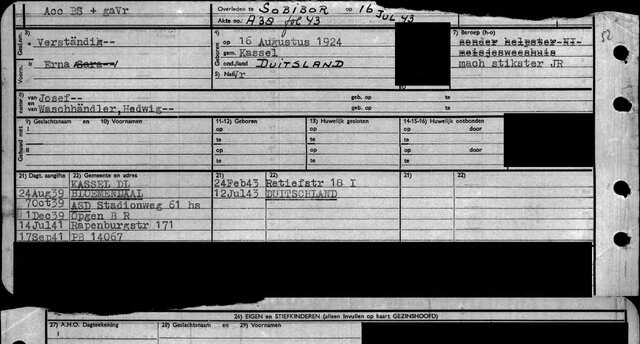 Acc BS + gaVr
Overleden te SOBIBOR op 16 JUL 43
Akte no. A38 fol 43
3)
Verständig--
Erna Sara--/
Gesln.
Voorn.
4)
Geboren
op 16 Augustus 1924
gem. Kassel
ond./land DUITSLAND
5) Nat. /r
7) Beroep (h-o)
zonder helpster NI-
meisjesweeshuis
mach stikster JR
52
8) van Josef-- geb. op te
en van Waschhändler, Hedwig-- geb. op te
Gehuwd met:
9) Geslachtsnaam en 10) Voornamen
11-12) Geboren
13) Huwelijk gesloten
14-15-16) Huwelijk ontbonden
I op op op door
te te te
II op op op door
te te te
21) Dagt. aangifte
22) Gemeente en adres
21)
22)
21)
22)
21)
22)
KASSEL DL
24Feb43 Retiefstr 18 I
24Aug39 BLOEMENDAAL
12Jul43 DUITSCHLAND
7Oct39 ASD Stadionweg 61 hs
1Dec39 Opgen B R
14Jul41 Rapenburgstr 171
17Sep41 PB 14067
26) EIGEN en STIEFKINDEREN (alleen invullen op kaart GEZINSHOOFD)
27) A.H.O. Dagteekening
28) Geslachtsnaam en 29) Voornamen
I